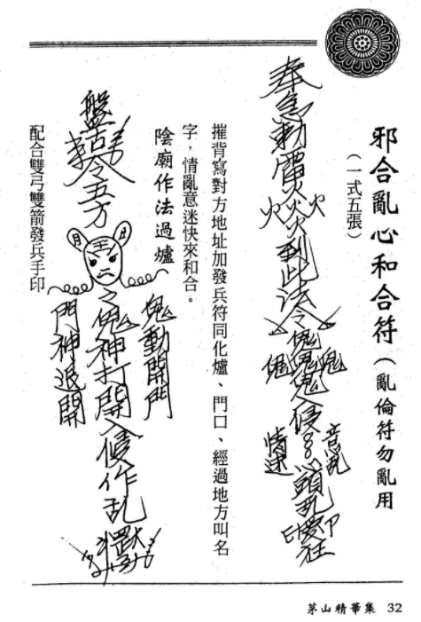 邪合亂心和合符(亂倫符勿亂用
(一式五張)
奉
勅雷火
火火
到此法令
鬼鬼
鬼鬼
入侵
情迷
意亂
頭亂
摧背寫對方地址加發兵符同化爐、門口、經過地方叫名
字,情亂意迷快來和合。
陰廟作法過爐
盤古
令五方
月王月
之鬼神打開入侵作乱
鬼動開門
門神退開
配合雙弓雙箭發兵手印
茅山精華集 32